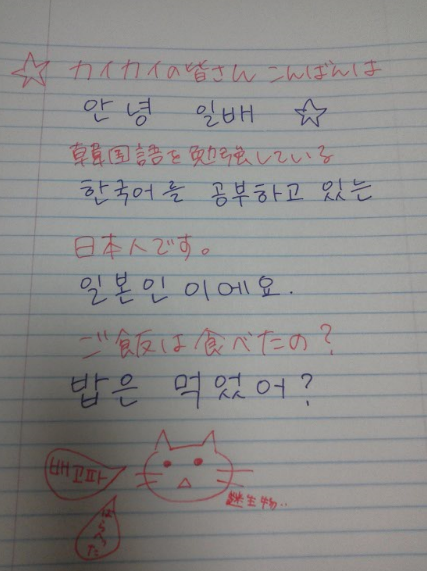 ☆ カイカイの皆さん こんばんは
안녕 일배 ☆
韓国語を勉強している
한국어를 공부하고 있는
日本人です。
일본인이에요.
ご飯は食べたの?
밥은 먹었어?
배고파
謎生物..
はらへった